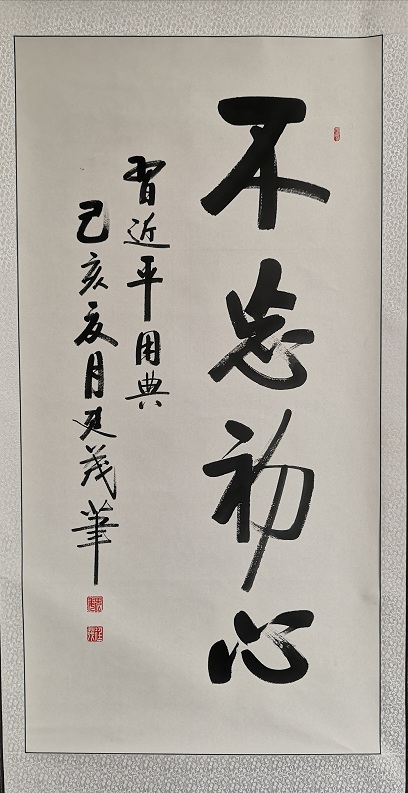 不忘初心
習近平用典
己亥夏月廷茂筆